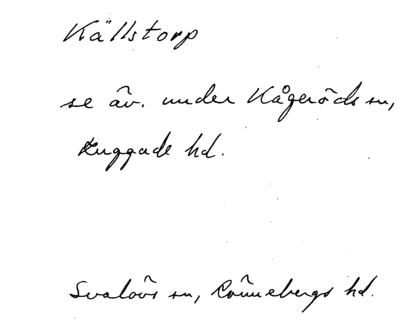 Källstorp
se äv. under Kågeröds sn,
Luggude hd.
Svalövs sn, Rönnebergs hd.